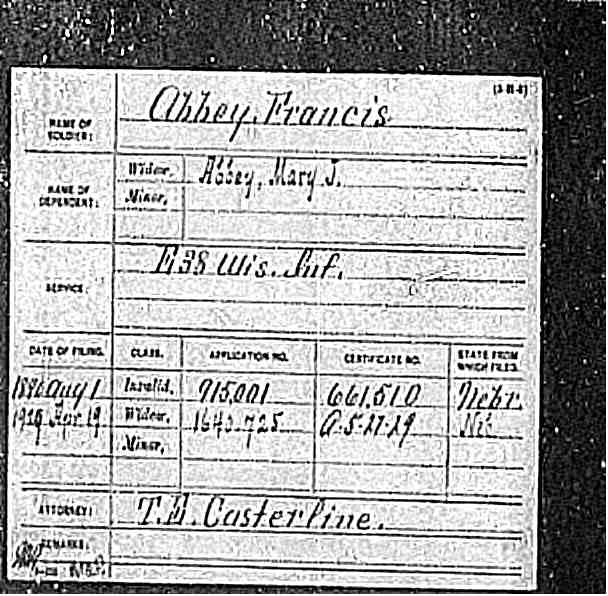 (3-111-8)
NAME OF SOLDIER: Abbey, Francis
NAME OF DEPENDENT: Widow, Abbey, Mary J.
Minor,
SERVICE: E 38 Wis. Inf.
DATE OF FILING. CLASS. APPLICATION NO. CERTIFICATE NO. STATE FROM WHICH FILED.
Aug 1 Invalid, 915,001 661,510 Nebr.
Apr. 19 Widow, 1640.725 A. 5-27-29
Minor,
ATTORNEY: T. E. Casterline.
REMARKS: